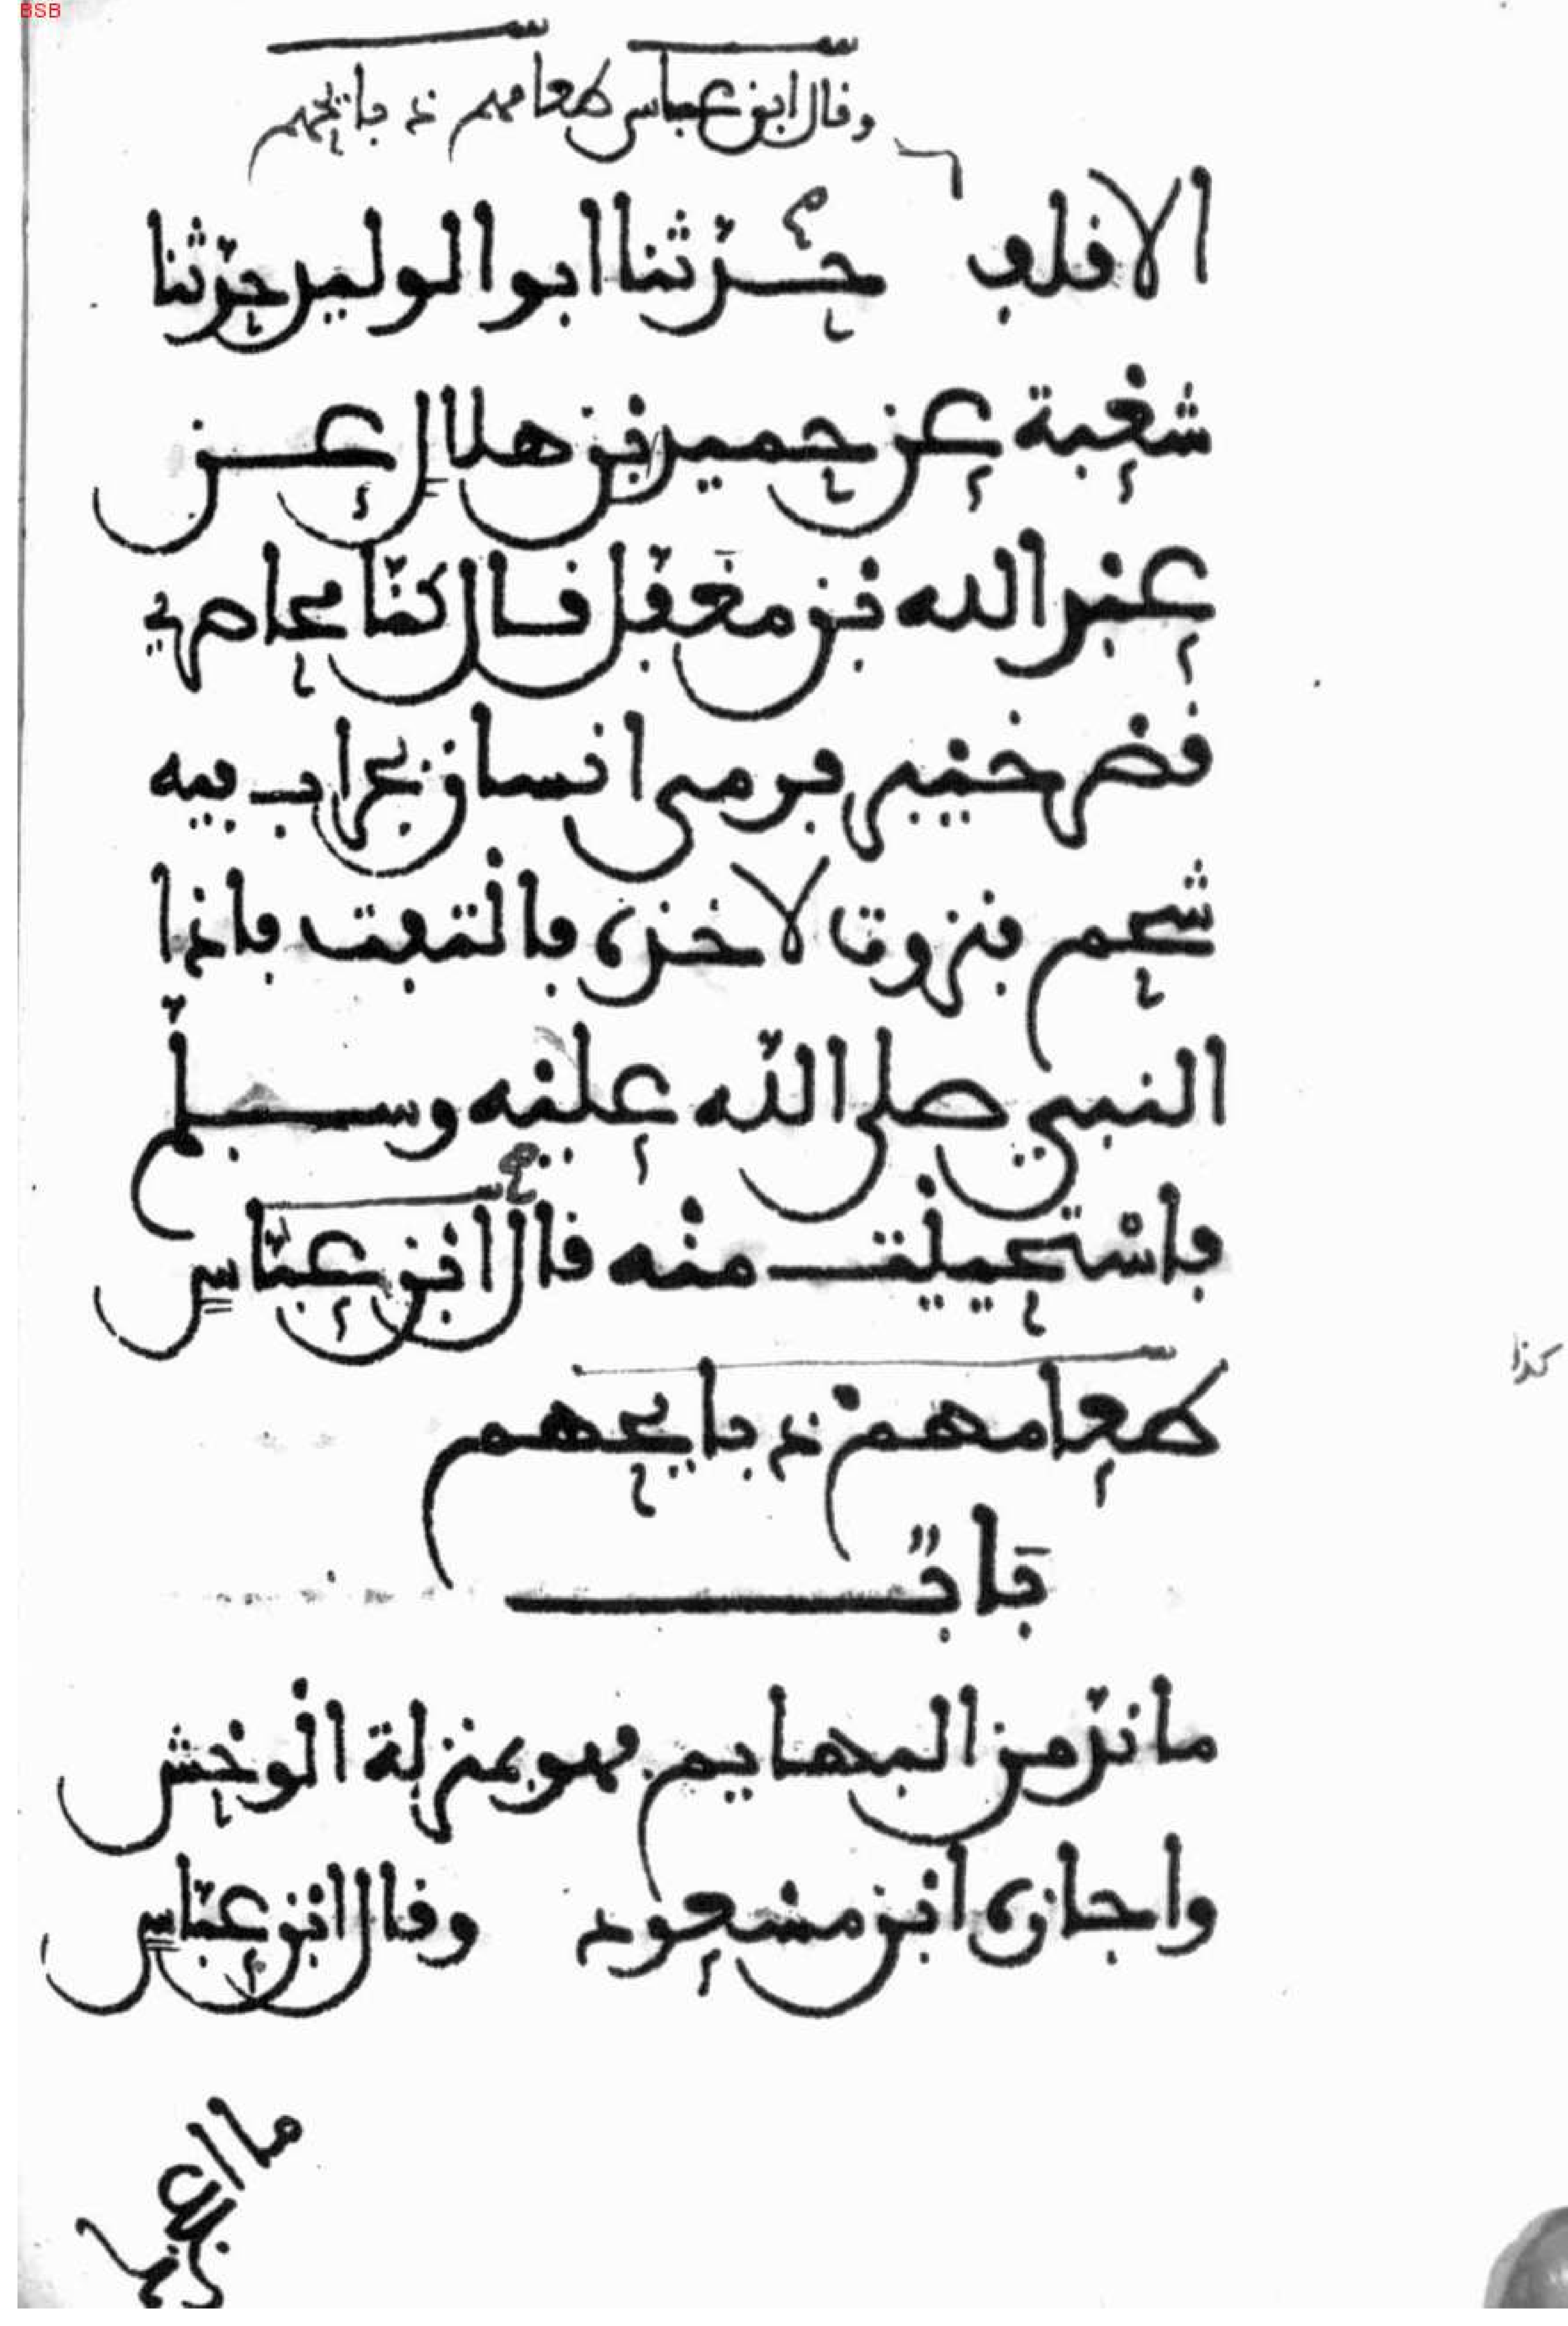 BSB
وقال ابن عباس طعامهم ذبايحهم
الاقلف حدثنا ابو الوليد حدثنا
شعبة عن حميد بن هلال عن
عبد الله بن مغفل قال كنا محاصري
قصر خيبر فرمى انسان بجراب فيه
شحم فنزوت لاخذه فالتفت فاذا
النبي صلى الله عليه وسلم
فاستحييت منه قال ابن عباس
طعامهم ذبايحهم
كذا
باب
ما ند من البهايم فهو بمنزلة الوحش
واجازه ابن مسعود وقال ابن عباس